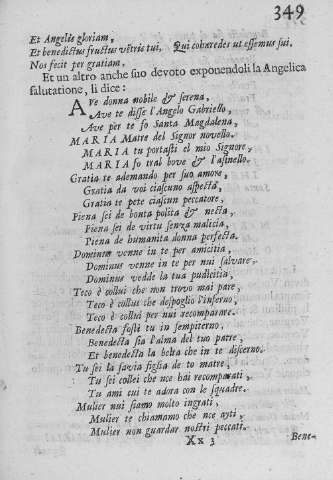 349
Et Angelis gloriam,
Et benedictus fructus vẽtris tui, Qui cohæredes ut essemus sui,
Nos fecit per gratiam,
Et un altro anche suo devoto exponendoli la Angelica
salutatione, li dice:
AVe donna nobile & serena,
Ave te disse l'Angelo Gabriello,
Ave per te fo Santa Magdalena,
MARIA Matre del Signor novello.
MARIA tu portasti el mio Signore,
MARIA fo tral bove & l'asinello.
Gratia te ademando per suo amore,
Gratia da voi ciascuno aspecta,
Gratia te pete ciascun peccatore,
Piena sei de bonta polita & necta,
Piena sei de virtu senza malicia,
Piena de humanita donna perfecta.
Dominus venne in te per amicitia,
Dominus venne in te per nui salvare,
Dominus vedde la tua pudicitia,
Teco è collui che non trovo mai pare,
Teco è collui che despoglio l'inferno,
Teco è collui per nui recomparare.
Benedecta fosti tu in sempiterno,
Benedecta sia l'alma del tuo patre,
Et benedecta la belta che in te discerno.
Tu sei la savia figlia de to matre,
Tu sei collei che nce hai recomparati,
Tu ami cui te adora con le squadre.
Mulier nui siamo molto ingrati,
Mulier te chiamamo che nce ayti,
Mulier non guardar nostri peccati.
Xx 3
Bene-